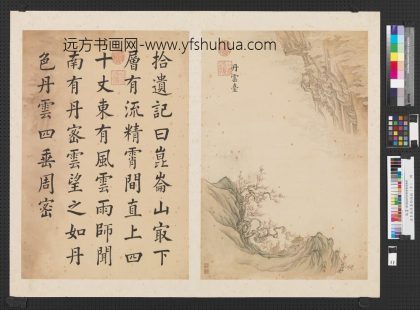 远方书画网-www.yfshuhua.com
拾遺記曰崑崙山㝡下
層有流精霄間直上四
十丈東有風雲雨師闕
南有丹密雲望之如丹
色丹雲四垂周密
丹雲臺